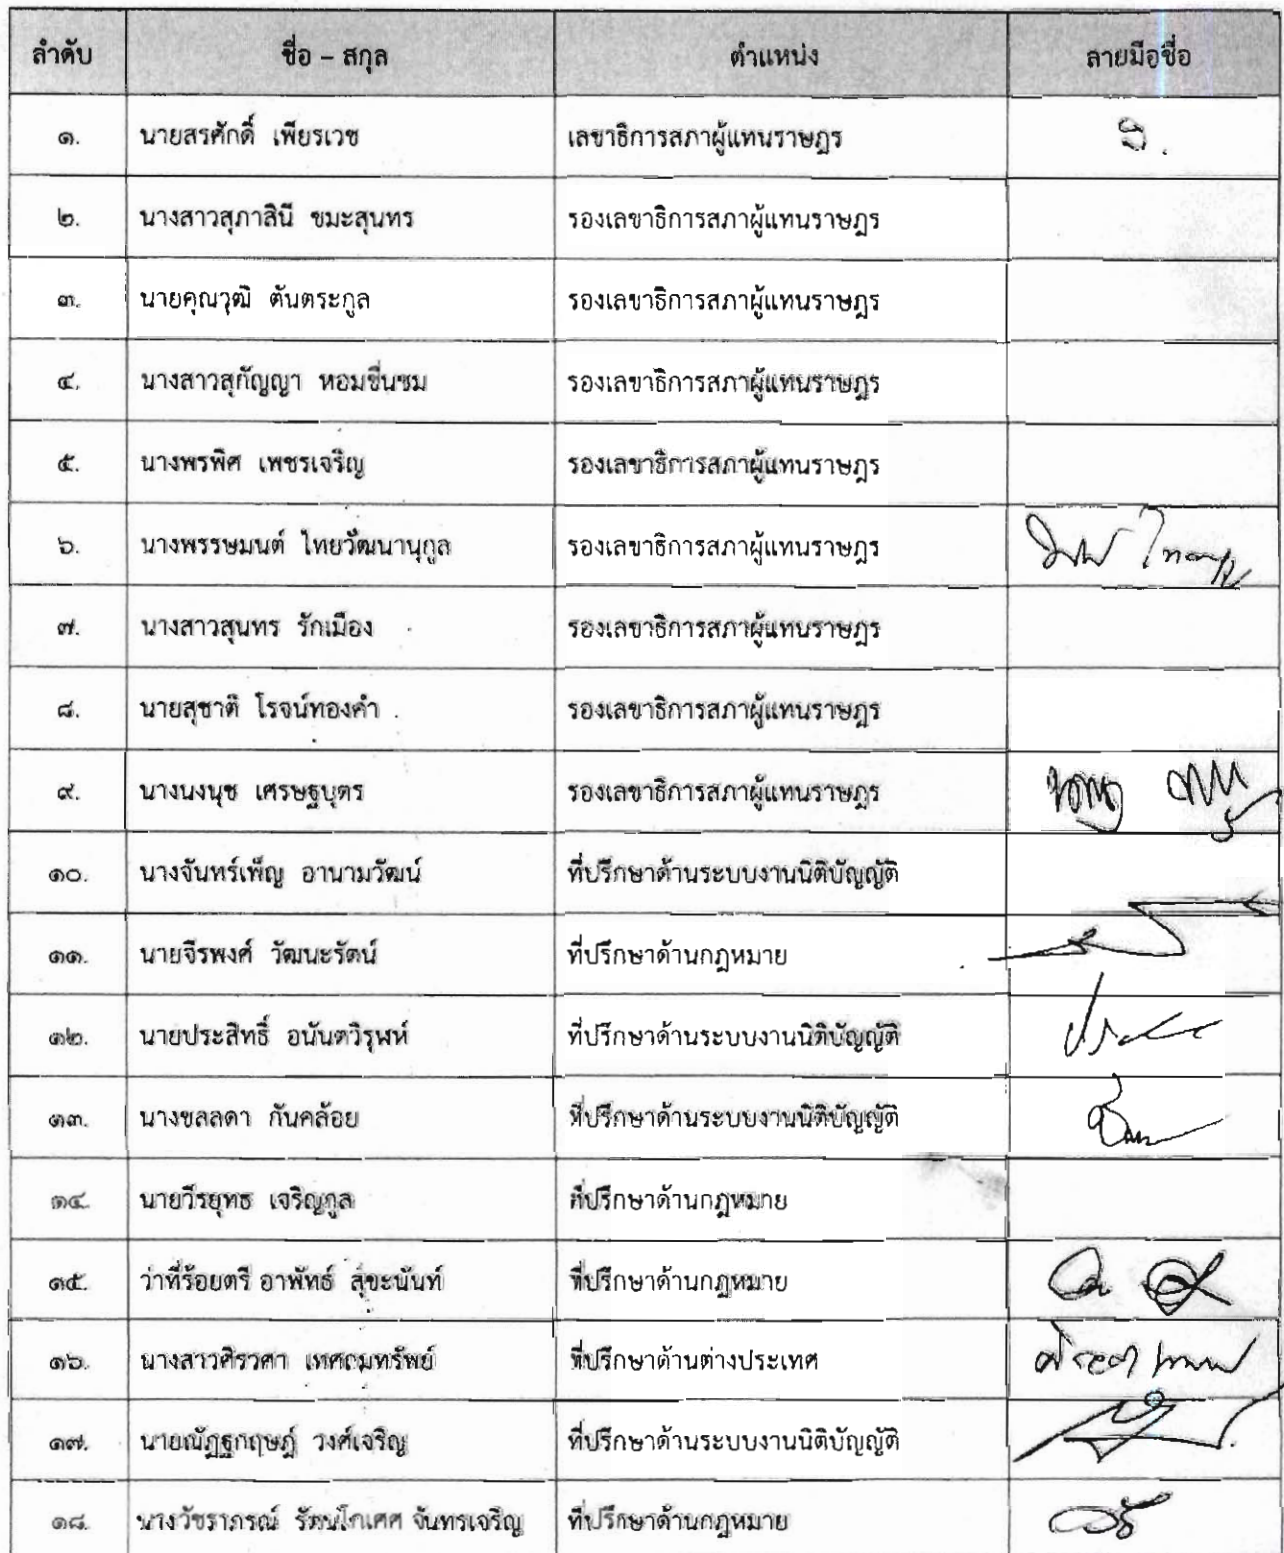 ลำดับ ชื่อ – สกุล ตำแหน่ง ลายมือชื่อ
๑. นายสรศักดิ์ เพียรเวช เลขาธิการสภาผู้แทนราษฎร
๒. นางสาวสุภาสินี ขมะสุนทร รองเลขาธิการสภาผู้แทนราษฎร
๓. นายคุณวุฒิ ตันตระกูล รองเลขาธิการสภาผู้แทนราษฎร
๔. นางสาวสุกัญญา หอมชื่นชม รองเลขาธิการสภาผู้แทนราษฎร
๕. นางพรพิศ เพชรเจริญ รองเลขาธิการสภาผู้แทนราษฎร
๖. นางพรรษมนต์ ไทยวัฒนานุกูล รองเลขาธิการสภาผู้แทนราษฎร
๗. นางสาวสุนทร รักเมือง รองเลขาธิการสภาผู้แทนราษฎร
๘. นายสุชาติ โรจน์ทองคำ รองเลขาธิการสภาผู้แทนราษฎร
๙. นางนงนุช เศรษฐบุตร รองเลขาธิการสภาผู้แทนราษฎร
๑๐. นางจันทร์เพ็ญ อานามวัฒน์ ที่ปรึกษาด้านระบบงานนิติบัญญัติ
๑๑. นายจีรพงศ์ วัฒนะรัตน์ ที่ปรึกษาด้านกฎหมาย
๑๒. นายประสิทธิ์ อนันตวิรุฬห์ ที่ปรึกษาด้านระบบงานนิติบัญญัติ
๑๓. นางชลลดา กันคล้อย ที่ปรึกษาด้านระบบงานนิติบัญญัติ
๑๔. นายวีรยุทธ เจริญกูล ที่ปรึกษาด้านกฎหมาย
๑๕. ว่าที่ร้อยตรี อาพัทธ์ สุขะนันท์ ที่ปรึกษาด้านกฎหมาย
๑๖. นางสาวศิรวศา เทศถมทรัพย์ ที่ปรึกษาด้านต่างประเทศ
๑๗. นายณัฏฐกฤษฎ์ วงศ์เจริญ ที่ปรึกษาด้านระบบงานนิติบัญญัติ
๑๘. นางวัชราภรณ์ รัตนโกเศศ จันทรเจริญ ที่ปรึกษาด้านกฎหมาย